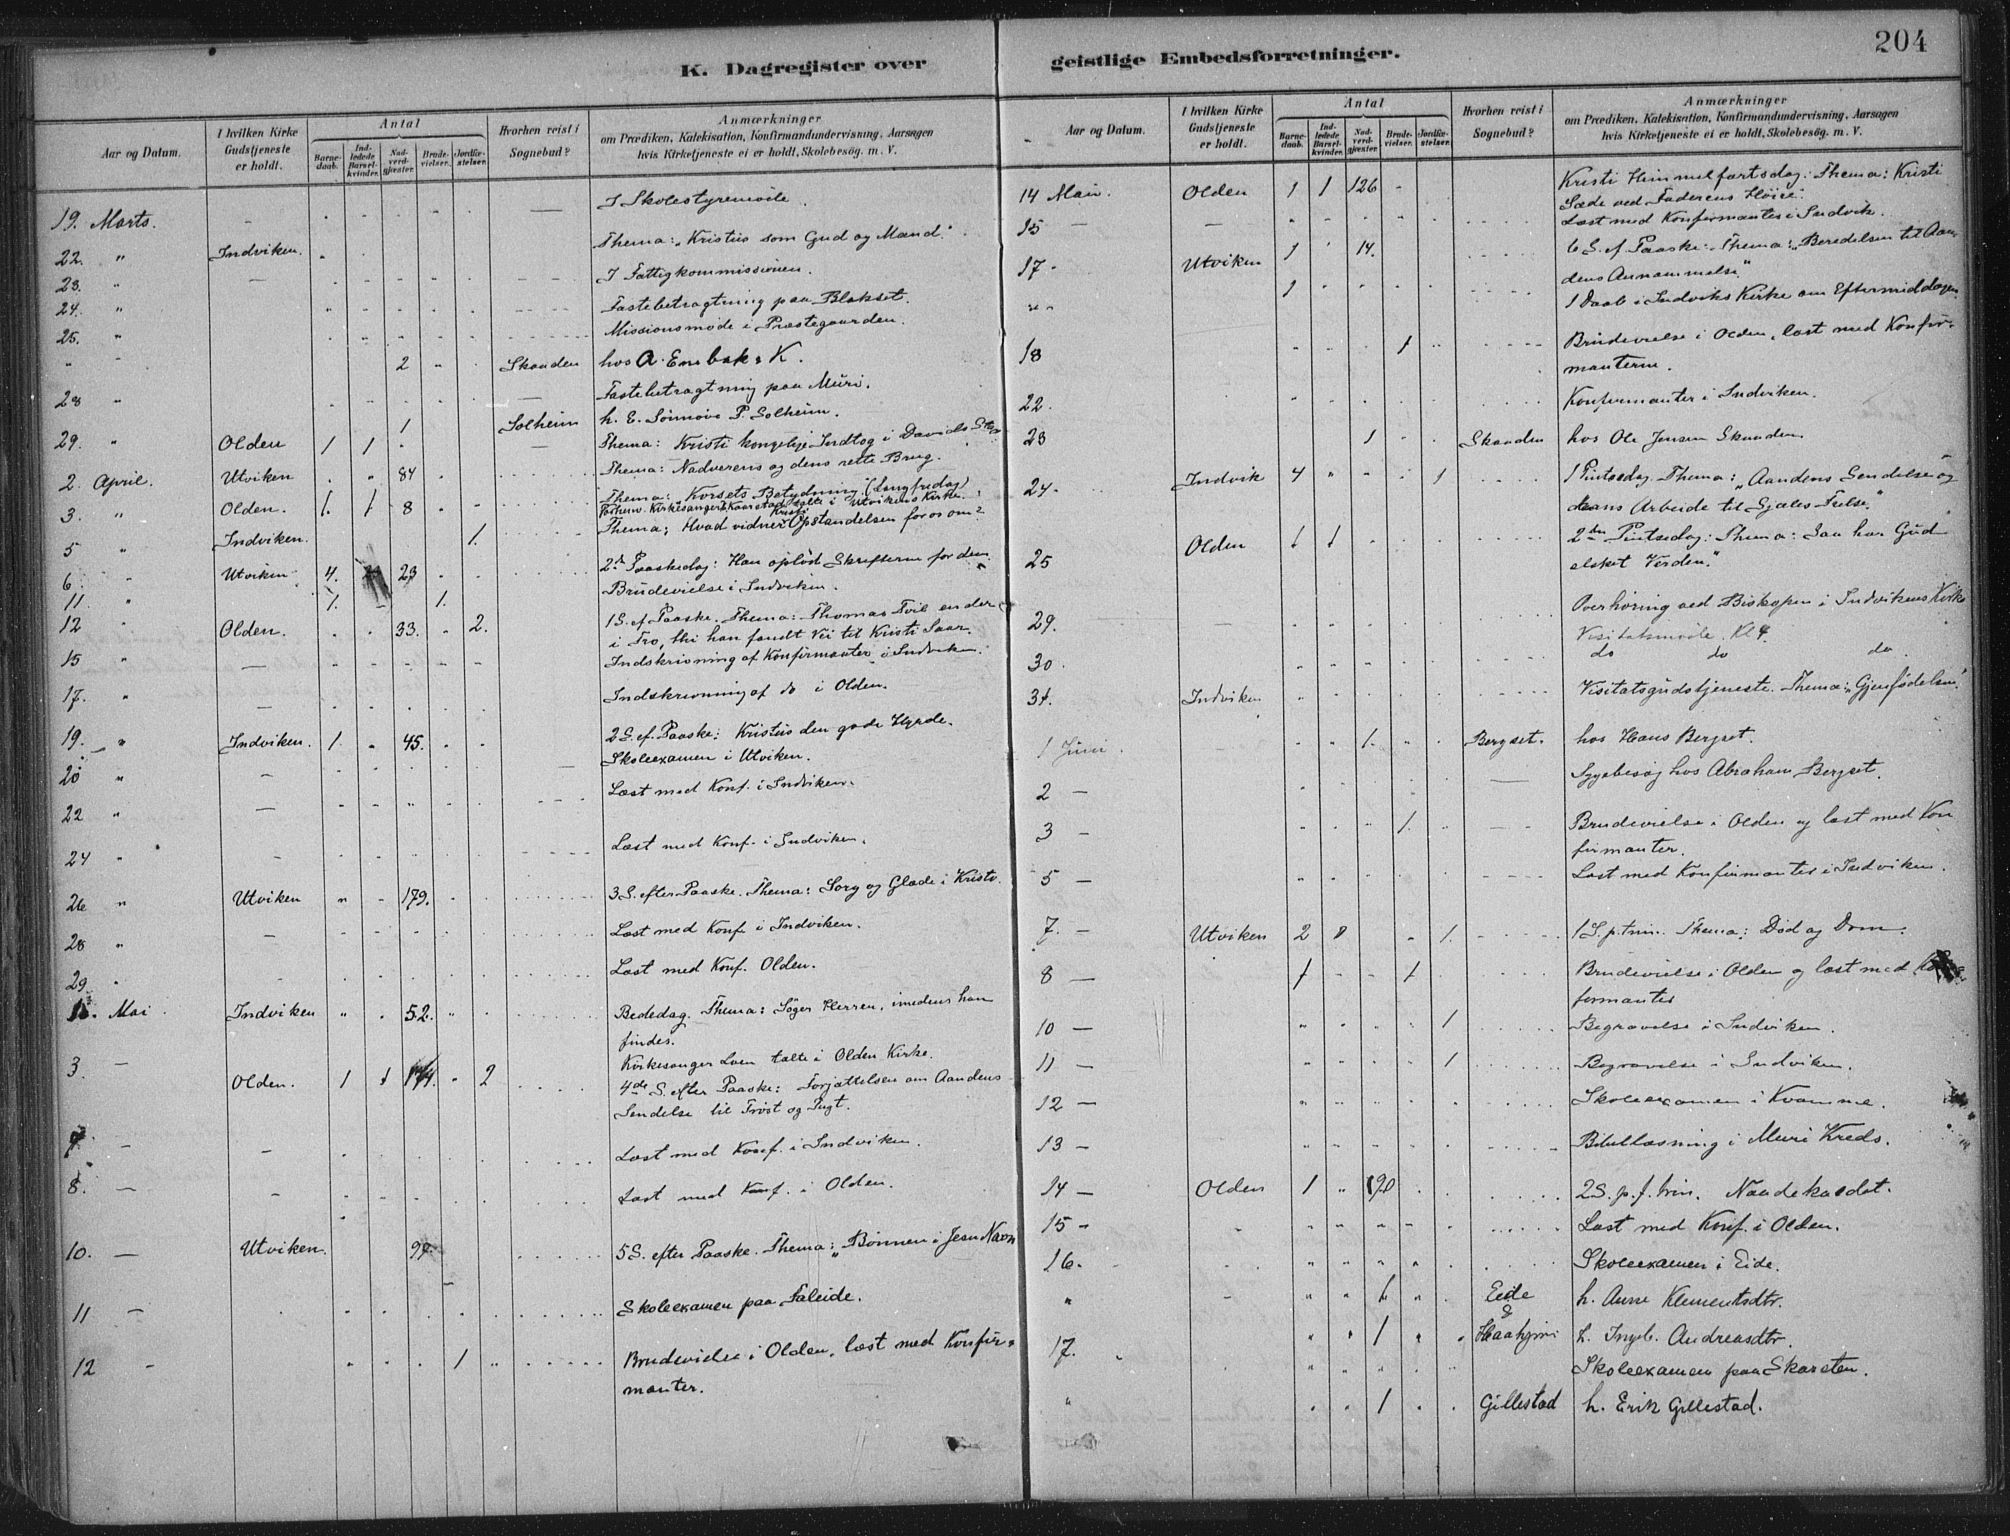 204
K. Dagregister over geistlige Embedsforretninger.
Aar og Datum. I hvilken Kirke Gudstjeneste er holdt. Antal Barnedaab. Indledede Barselkvinder. Nadverdgjæster. Brudevielser. Jordfæstelser. Hvorhen reist i Sognebud? Anmærkninger om Prædiken, Katekisation, Konfirmandundervisning, Aarsagen hvis Kirketjeneste ei er holdt, Skolebesøg. m. V.
19. Marts. I Skolestyremøde.
22. " Indviken. Thema: "Kristus som Gud og Mand."
23. " I Fattigkommissionen.
24. " Fastebetragtning paa Blakset.
25. " Missionsmøde i Præstegaarden.
" " 2 " Skaaden hos A. Enebak K.
28 " Fastebetragtning paa Muri.
1 Solheim h. E. Sønnøve P. Solheim.
29. " Olden 1 1 Thema: Kristi kongelige Indtog i Davids
2. April. Utviken 84 Thema: Nadverens og dens rette Brug.
3. " Olden. 1. 1 8 Thema: Korsets Betydning (Langfredag)
Kirkesanger Kaarstad talte i Utvikens Kirke.
5 " Indviken. 1. Thema: Hvad vidner Kristi Opstandelsen for os om?
6. " Utviken 4. 23 2d Paaskedag: Han oplod Skrifterne for dem.
11. " 1. 1. Brudevielse i Indviken.
12 " Olden. 33. 2. 1 S. ef. Paaske. Thema: Thomas Tvil ender
i Tro, thi han fandt Vei til Kristi Saar.
15 " — Indskrivning af Konfirmanter i Indviken.
17. " — Indskrivning af do i Olden.
19. " Indviken. 1. 45. 2 S. ef. Paaske: Kristus den gode Hyrde.
20 " — Skoleexamen i Utviken.
22 " — Læst med Konf. i Indviken.
24 " - Læst med Konf. i Indviken.
26 " Utviken " - 179. 3 S. efter Paaske. Thema: Sorg og Glæde i Kristo.
28 " - Læst med Konf. i Indviken.
29 " - Læst med Konf. Olden.
1. Mai Indviken " 52. " Bededag. Thema: Søger Herren, imedens han
findes.
3. — Kirkesanger Loen talte i Olden Kirke.
Olden. 1 1 174. " 2 4de S. efter Paaske: Forjættelsen om Aandens
Sendelse til Trøst og Tugt.
7. — - Læst med Konf. i Indviken.
8. — - Læst med Konf. i Olden.
10. — Utviken. 97. 5 S. efter Paaske. Thema: "Bønnen i Jesu Navn
11 — Skoleexamen paa Faleide.
12 - 1 Brudevielse i Olden, læst med Konfir-
manter.
Aar og Datum. I hvilken Kirke Gudstjeneste er holdt. Antal Barnedaab. Indledede Barselkvinder. Nadverdgjæster. Brudevielser. Jordfæstelser. Hvorhen reist i Sognebud? Anmærkninger om Prædiken, Katekisation, Konfirmandundervisning, Aarsagen hvis Kirketjeneste ei er holdt, Skolebesøg. m. V.
14 Mai. Olden 1 1 126 - Kristi Himmelfartsdag: Thema: Kristi
Sæde ved Faderens Høire.
15 — — Læst med Konfirmanter i Indvik.
17. - Utviken 1 14. 6 S. ef. Paaske: Thema: "Beredelsen til Aan-
dens Annammelse."
" " 1 1 Daab i Indviks Kirke om Eftermiddagen.
18 1 Brudevielse i Olden, læst med Konfir-
manterne.
22. Konfirmanter i Indviken.
23 1 Skaaden hos Ole Jensen Skaaden.
24. Indvik 4 " 1 1 Pintsedag. Thema: "Aandens Sendelse og
dens Arbeide til Sjæles Frelse."
25 Olden 1 1 2den Pintsedag: Thema: Saa har Gud
elsket Verden."
29. Overhøring ved Biskopen i Indvikens Kirke
Visitatsmøde. Kl 4.
30. do do do.
31. Indviken Visitatsgudstjeneste. Thema: "Gjenfødelsen."
1 Juni. 1. Bergset. hos Hans Bergset.
2 — — Sygebesøg hos Abraham Bergset.
3 — 1. Brudevielse i Olden og læst med Kon
firmanter.
5 — Læst med Konfirmanter i Indviken.
7. — Utviken 2 8 1. 1 S. p. trin. Thema: Død og Dom.
8 — 1 1 Brudevielse i Olden og læst med
firmanter
10 — 1 Begravelse i Indviken.
11 — 1 Begravelse i Indviken.
12 — Skoleexamen i Kvamme.
13 — Bibellæsning i Muri Kreds.
14 — Olden 1 " 190 2 S. p. f. trin. Naadekaldet.
15 - Læst med Konf. i Olden.
16. Skoleexamen i Eide.
" - 1 Eide h. Anne Klementsdtr.
&
17. 1 h. Ingeb. Andreasdtr.
Skoleexamen paa Skarsten.
" 1 Gillestad h. Erik Gillestad.